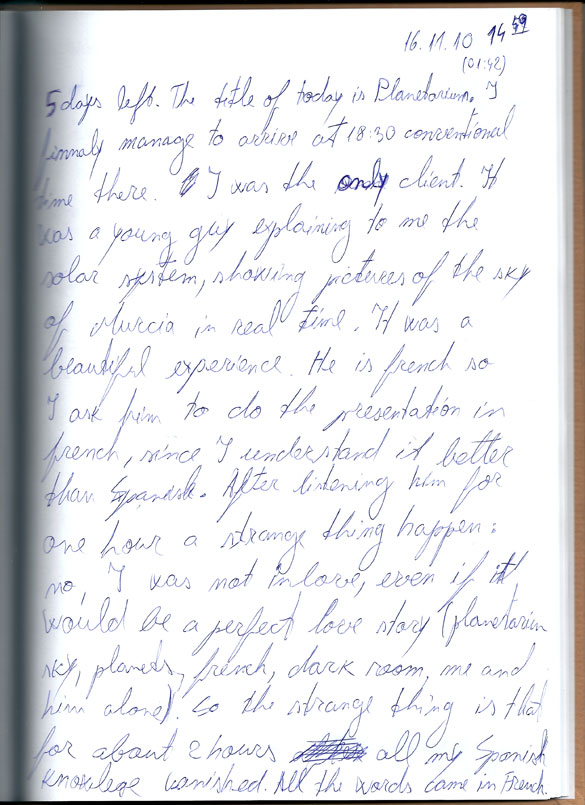 16.11.10 14 59
(01:42)
5 days left. The title of today is Planetarium. I
finnaly manage to arrive at 18:30 conventional
time there. I was the only client. It
was a young guy explaining to me the
solar system, showing pictures of the sky
of Murcia in real time. It was a
beautiful experience. He is french so
I ask him to do the presentation in
french, since I understand it better
than Spanish. After listening him for
one hour a strange thing happen:
no, I was not inlove, even if it
would be a perfect love story (planetarium
sky, planets, french, dark room, me and
him alone). So the strange thing is that
for about 2 hours all my Spanish
knowlege vanished. All the words came in French.